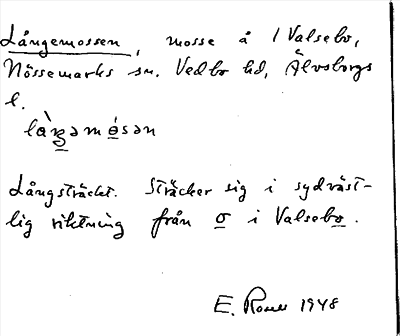 Långemossen, mosse å 1 Valsebo,
Nössemarks sn. Vedbo hd, Älvsborgs
l.
Långsträckt. Sträcker sig i sydväst-
lig riktning från o i Valsebo.
E. 1948